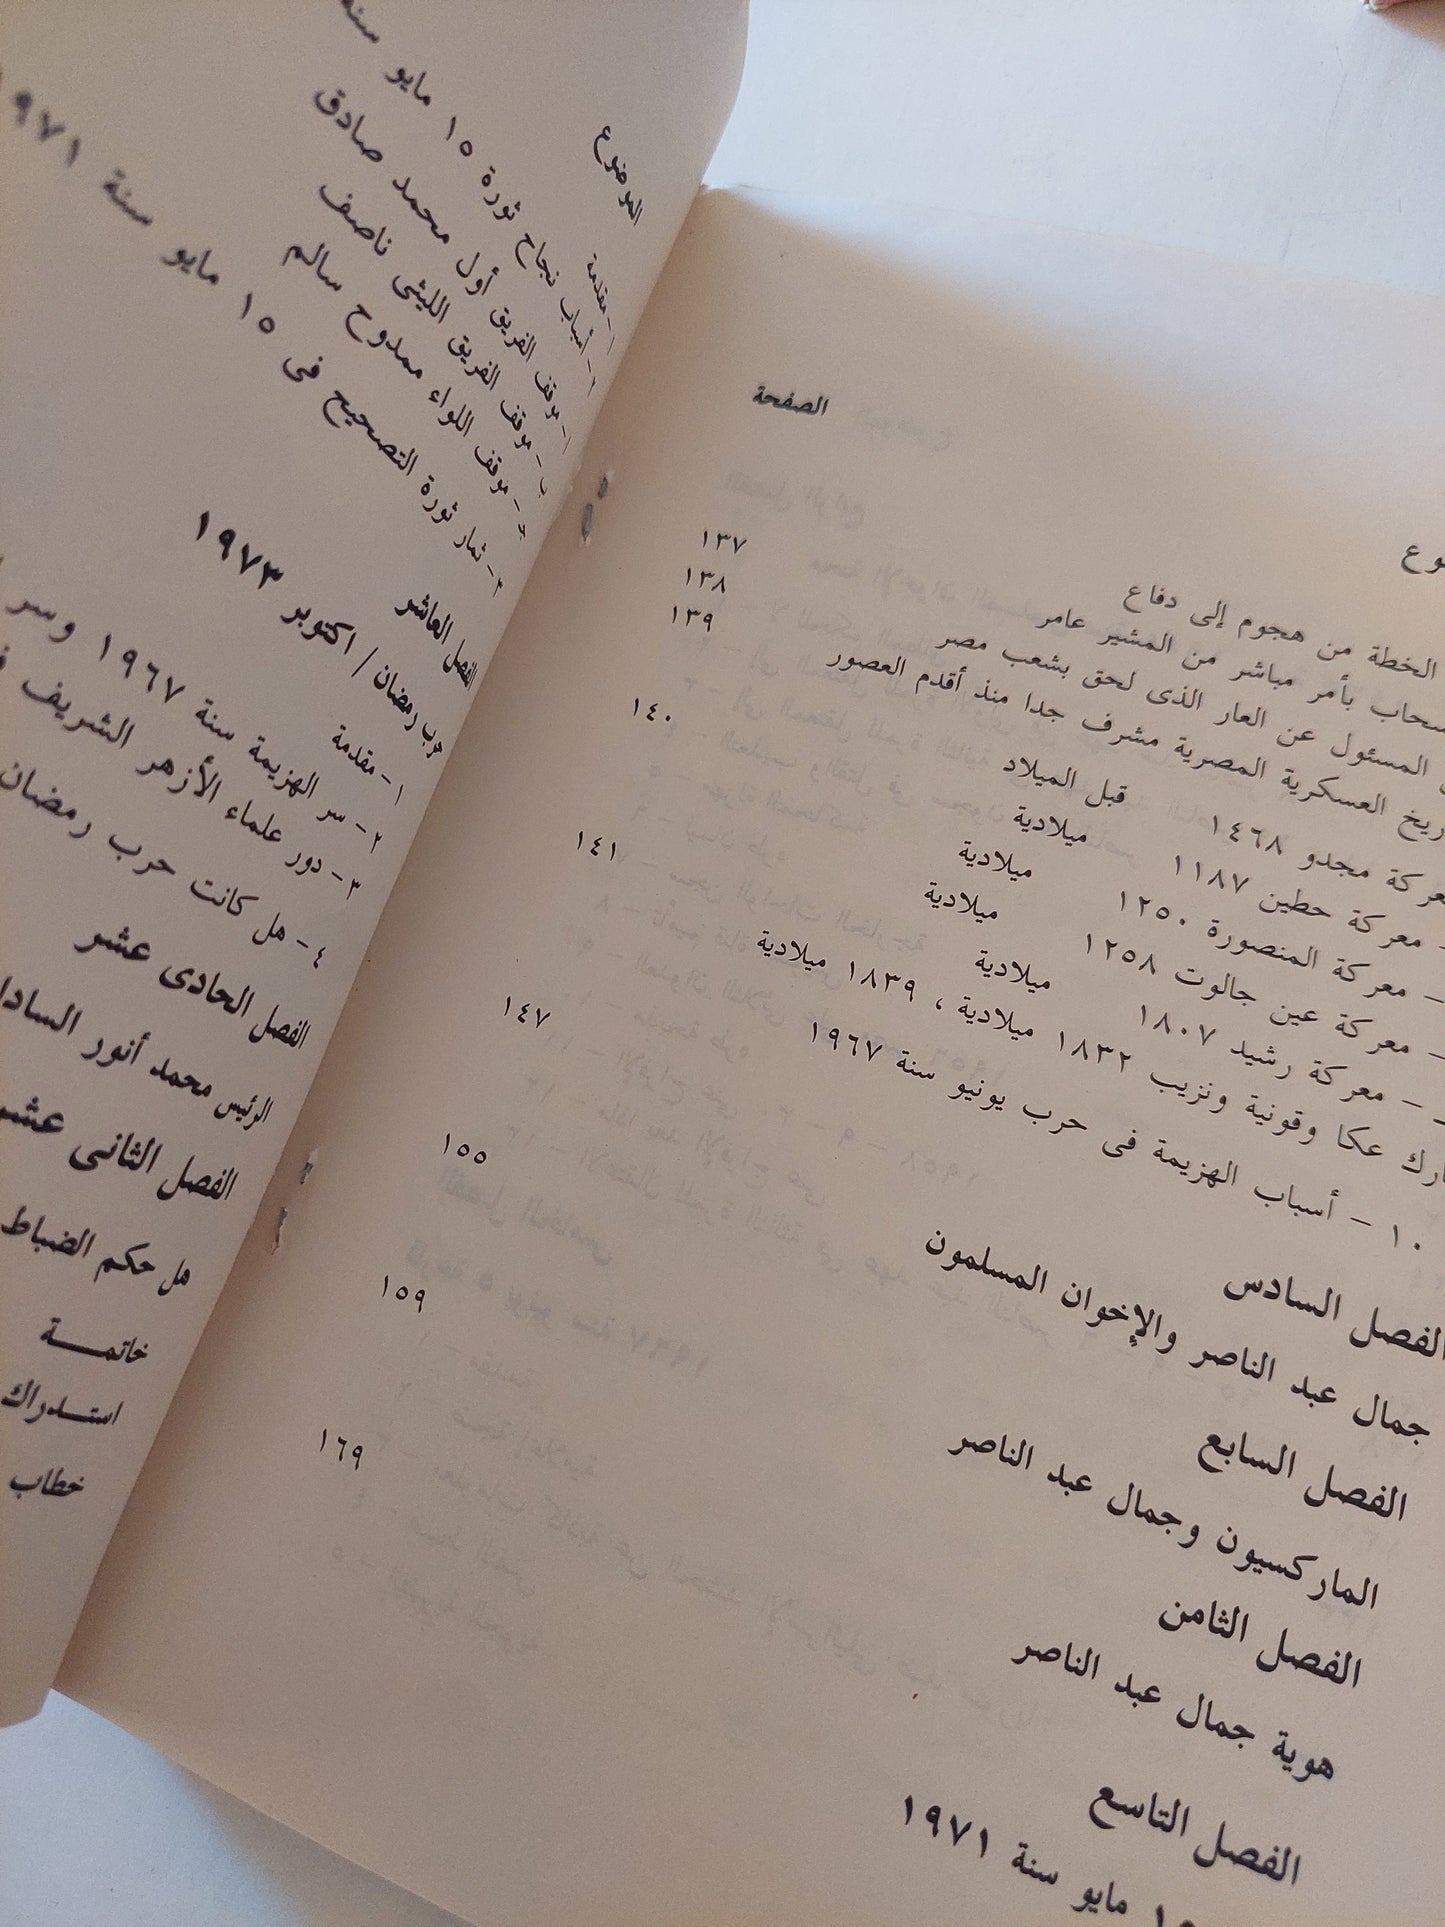 الصفحة
الخطة من هجوم إلى دفاع ١٣٧
بأمر مباشر من المشير عامر ١٣٨
المسئول عن العار الذى لحق بشعب مصر ١٣٩
العسكرية المصرية مشرف جدا منذ أقدم العصور
مجدو ١٤٦٨ قبل الميلاد ١٤٠
معركة حطين ١١٨٧ ميلادية
– معركة المنصورة ١٢٥٠ ميلادية
– معركة عين جالوت ١٢٥٨ ميلادية ١٤١
– معركة رشيد ١٨٠٧ ميلادية
عكا وقونية ونزيب ١٨٣٢ ميلادية ، ١٨٣٩ ميلادية
١٠ – أسباب الهزيمة فى حرب يونيو سنة ١٩٦٧ ١٤٧
الفصل السادس
جمال عبد الناصر والإخوان المسلمون ١٥٥
الفصل السابع
الماركسيون وجمال عبد الناصر ١٥٩
الفصل الثامن
هوية جمال عبد الناصر ١٦٩
الفصل التاسع
مايو سنة ١٩٧١
الموضوع
١ – مقدمة
– أسباب نجاح ثورة ١٥ مايو سنة
– موقف الفريق أول محمد صادق
ب – موقف الفريق الليثى ناصف
ج – موقف اللواء ممدوح سالم
٣ – ثمار ثورة التصحيح فى ١٥ مايو سنة ١٩٧١
الفصل العاشر
حرب رمضان / اكتوبر ١٩٧٣
١ – مقدمة
٢ – سر الهزيمة سنة ١٩٦٧ وسر
٣ – دور علماء الأزهر الشريف
٤ – هل كانت حرب رمضان
الفصل الحادى عشر
الرئيس محمد أنور
الفصل الثانى عشر
هل حكم الضباط
خاتمـــة
استــدراك
خطاب